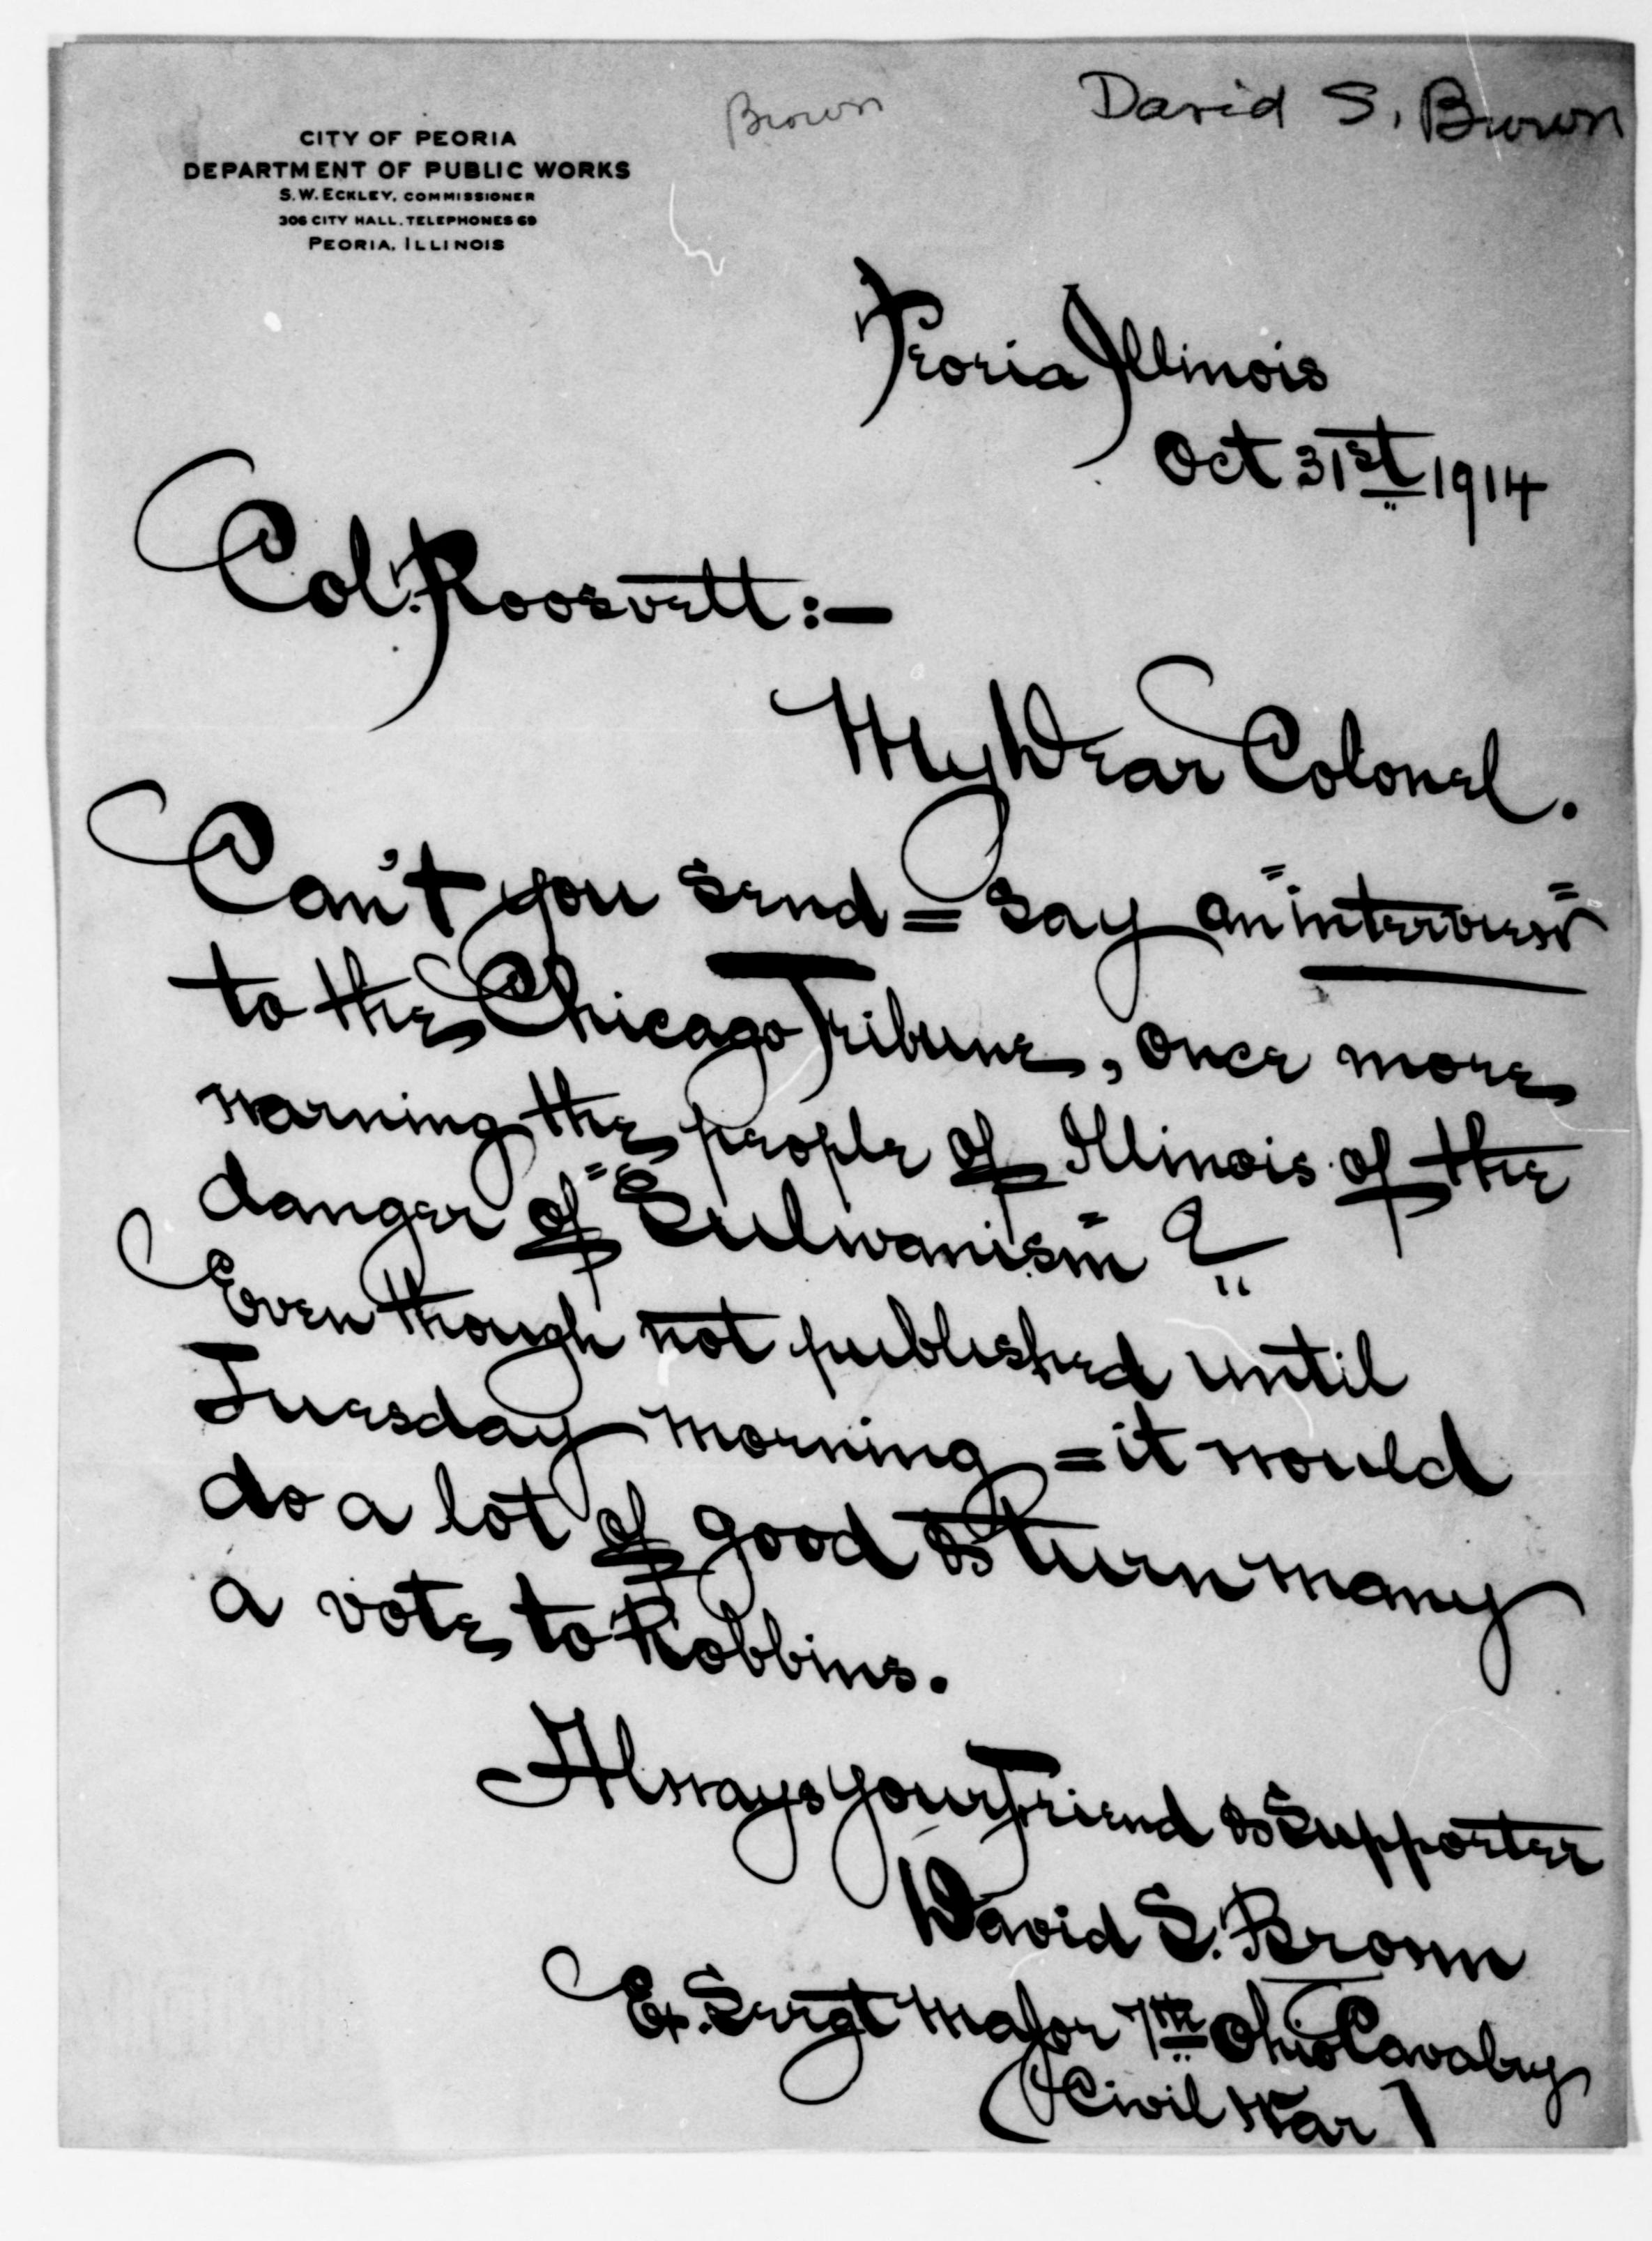 Brown
David S. Brown
CITY OF PEORIA
DEPARTMENT OF PUBLIC WORKS
S. W. ECKLEY, COMMISSIONER
306 CITY HALL. TELEPHONES 69
PEORIA, ILLINOIS
Peoria Illinois
Oct 31st 1914
Col. Roosvelt:—
My Dear Colonel.
Can't you send = say an "interview"
to the Chicago Tribune, once more
warning the people of Illinois of the
danger of "Sulivanism"?
Even though not published until
Tuesday morning = it would
do a lot of good & turn many
a vote to Robbins.
Always your Friend & Supporter
David S. Brown
Ex. Sergt Major 7th Ohio Cavalry
(Civil War)